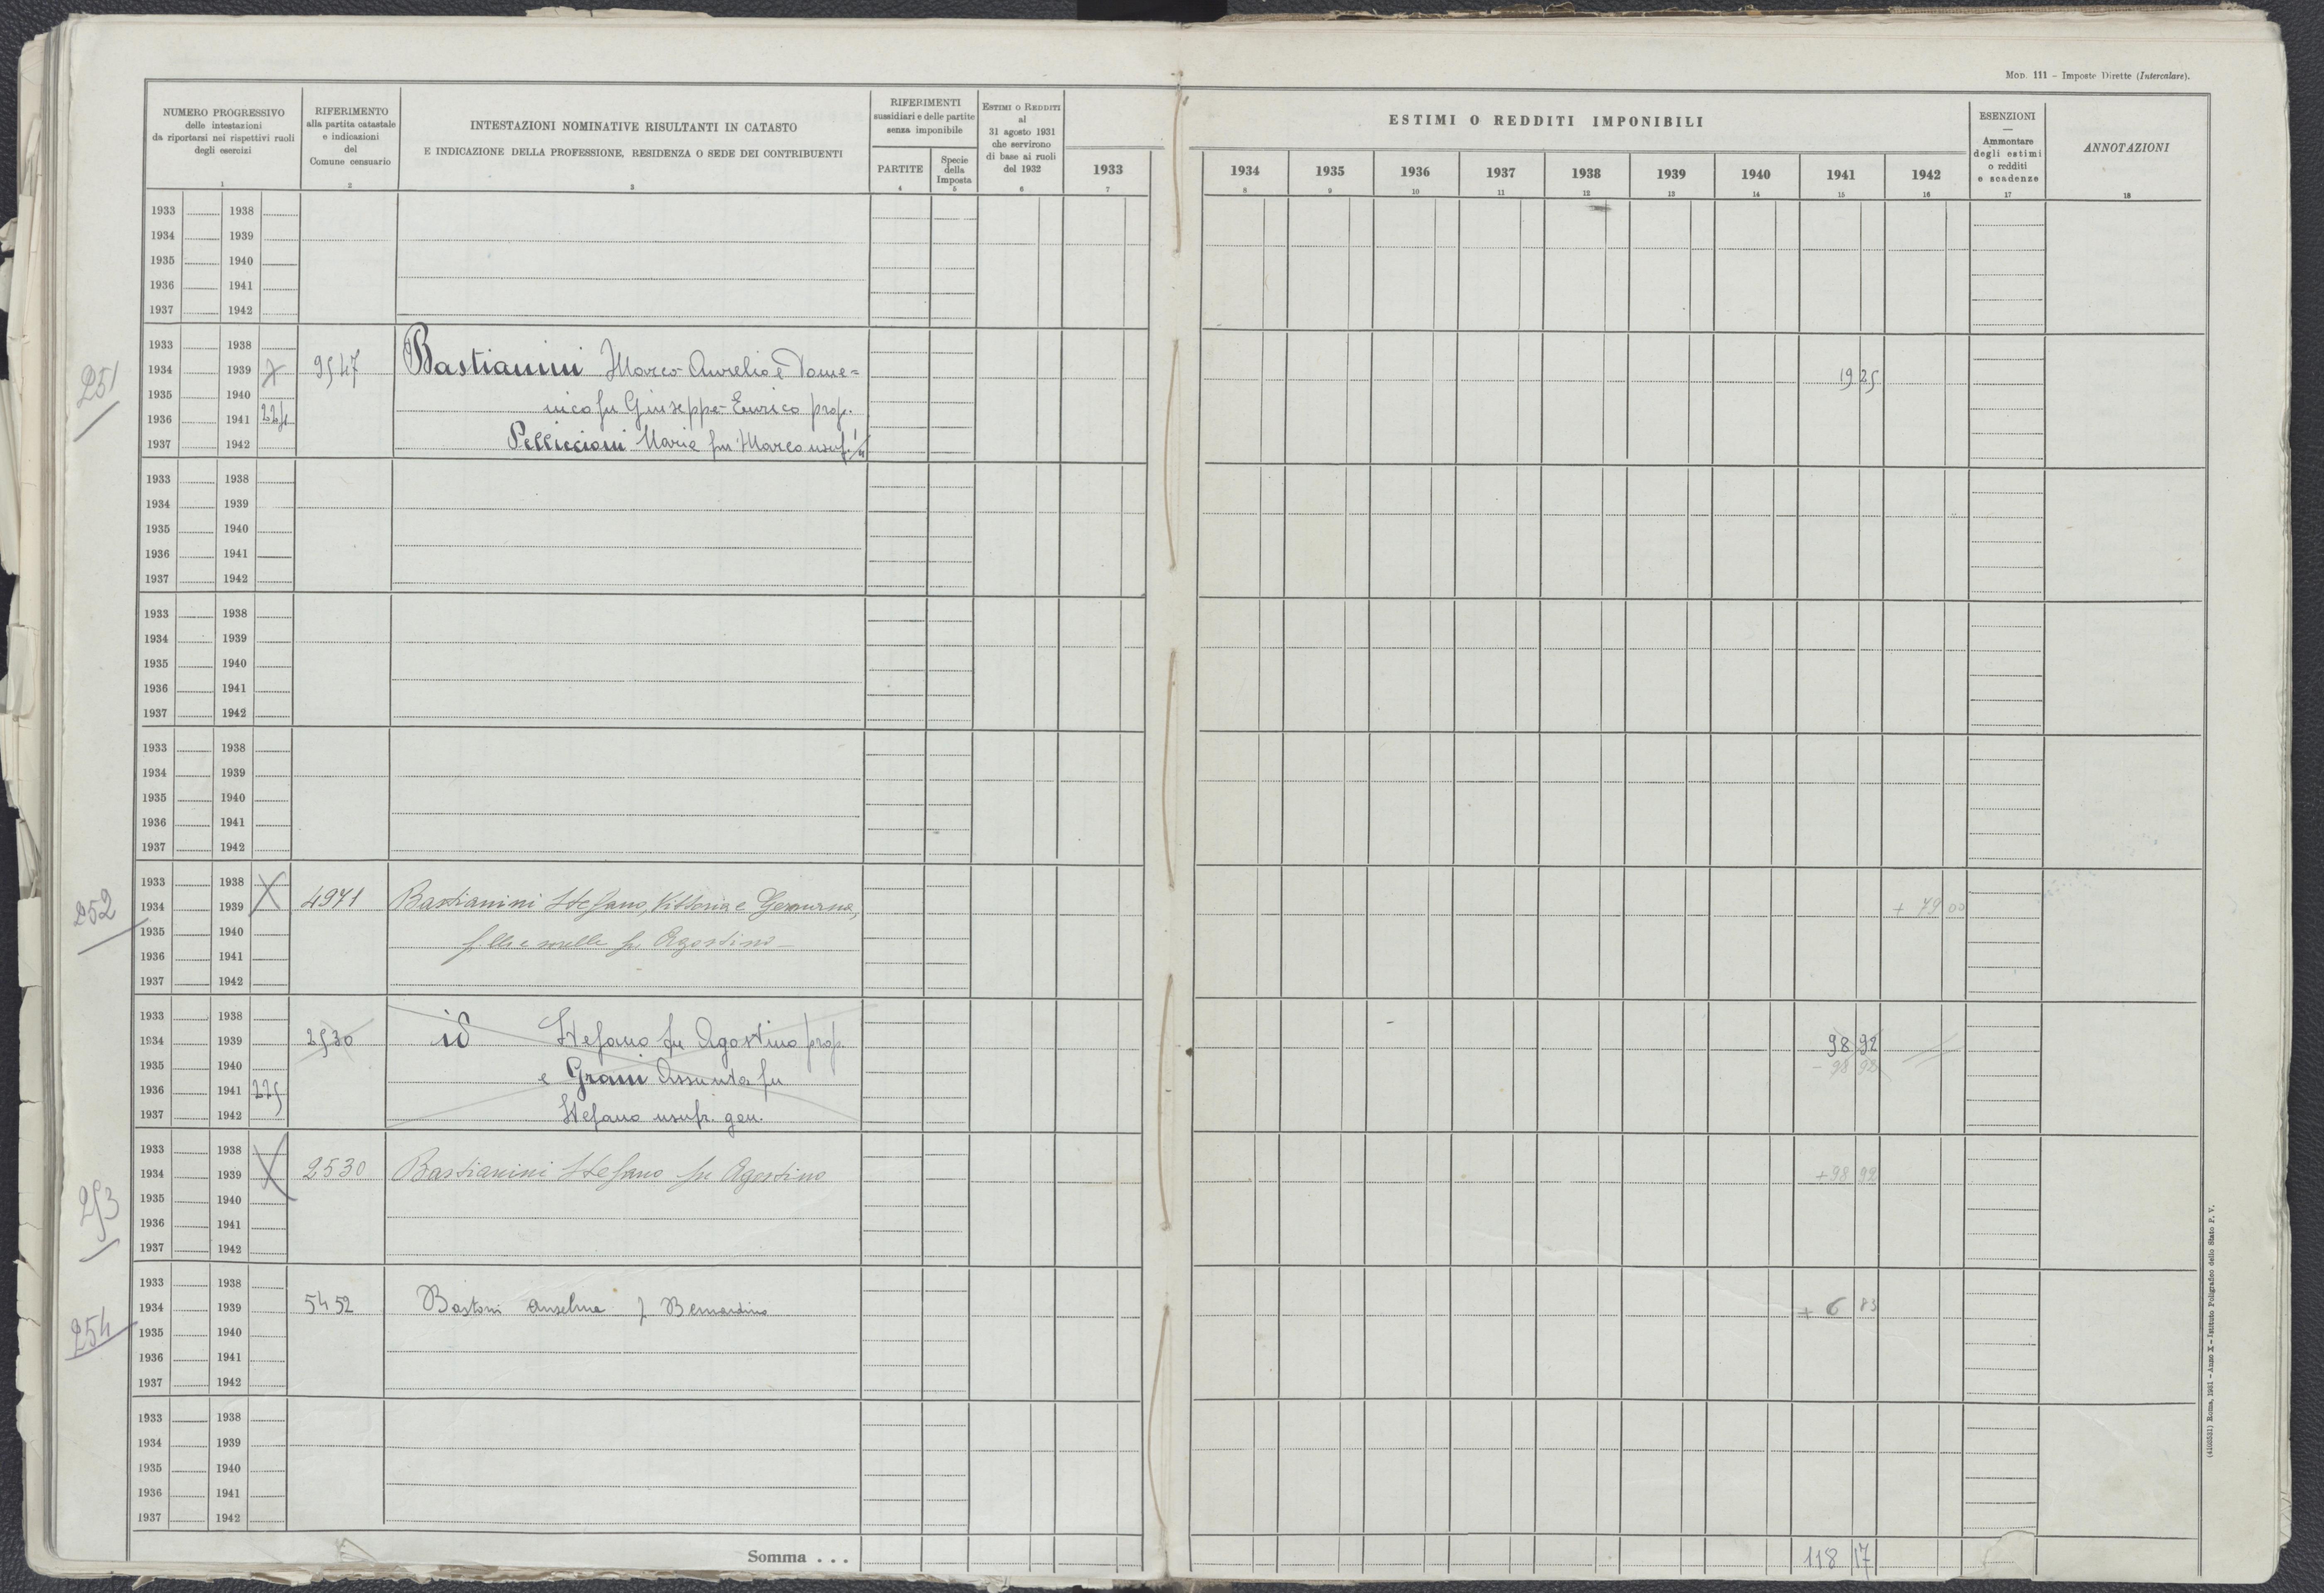 Mod. 111 – Imposte Dirette (Intercalare).
NUMERO PROGRESSIVO
delle intestazioni
da riportarsi nei rispettivi ruoli
degli esercizi
1
RIFERIMENTO
alla partita catastale
e indicazioni
del
Comune censuario
2
INTESTAZIONI NOMINATIVE RISULTANTI IN CATASTO
E INDICAZIONE DELLA PROFESSIONE, RESIDENZA O SEDE DEI CONTRIBUENTI
3
RIFERIMENTI
sussidiari e delle partite
senza imponibile
PARTITE
4
Specie
della
Imposta
5
Estimi o Redditi
al
31 agosto 1931
che servirono
di base ai ruoli
del 1932
6
1933
7
ESTIMI O REDDITI IMPONIBILI
1934 1935 1936 1937 1938 1939 1940 1941 1942
8 9 10 11 12 13 14 15 16
ESENZIONI
—
Ammontare
degli estimi
o redditi
e scadenze
17
ANNOTAZIONI
18
1933 1938
1934 1939
1935 1940
1936 1941
1937 1942
251
1933 1938
1934 1939 9547 Bastianini Marco Aurelio e Dome= 19 25
1935 1940 nico fu Giuseppe Enrico prop.
1936 1941 224
1937 1942 Pelliccioni Maria fu Marco usuf.
1933 1938
1934 1939
1935 1940
1936 1941
1937 1942
1933 1938
1934 1939
1935 1940
1936 1941
1937 1942
1933 1938
1934 1939
1935 1940
1936 1941
1937 1942
252
1933 1938 X
1934 1939 4971 Bastianini Stefano, Vittoria e + 79 00
1935 1940 f.lli e sorelle fu Agostino
1936 1941
1937 1942
1933 1938
1934 1939 2530 id Stefano fu Agostino prop. 98 92
1935 1940 e Grani Assunta fu - 98 92
1936 1941 225
1937 1942 Stefano usufr. gen.
253
1933 1938 X
1934 1939 2530 Bastianini Stefano fu Agostino +98 92
1935 1940
1936 1941
1937 1942
254
1933 1938
1934 1939 5452 Bastoni Anselma f Bernardino + 6 83
1935 1940
1936 1941
1937 1942
1933 1938
1934 1939
1935 1940
1936 1941
1937 1942
Somma . . . 118 17
(4102531) Roma, 1931 – Anno X – Istituto Poligrafico dello Stato P. V.